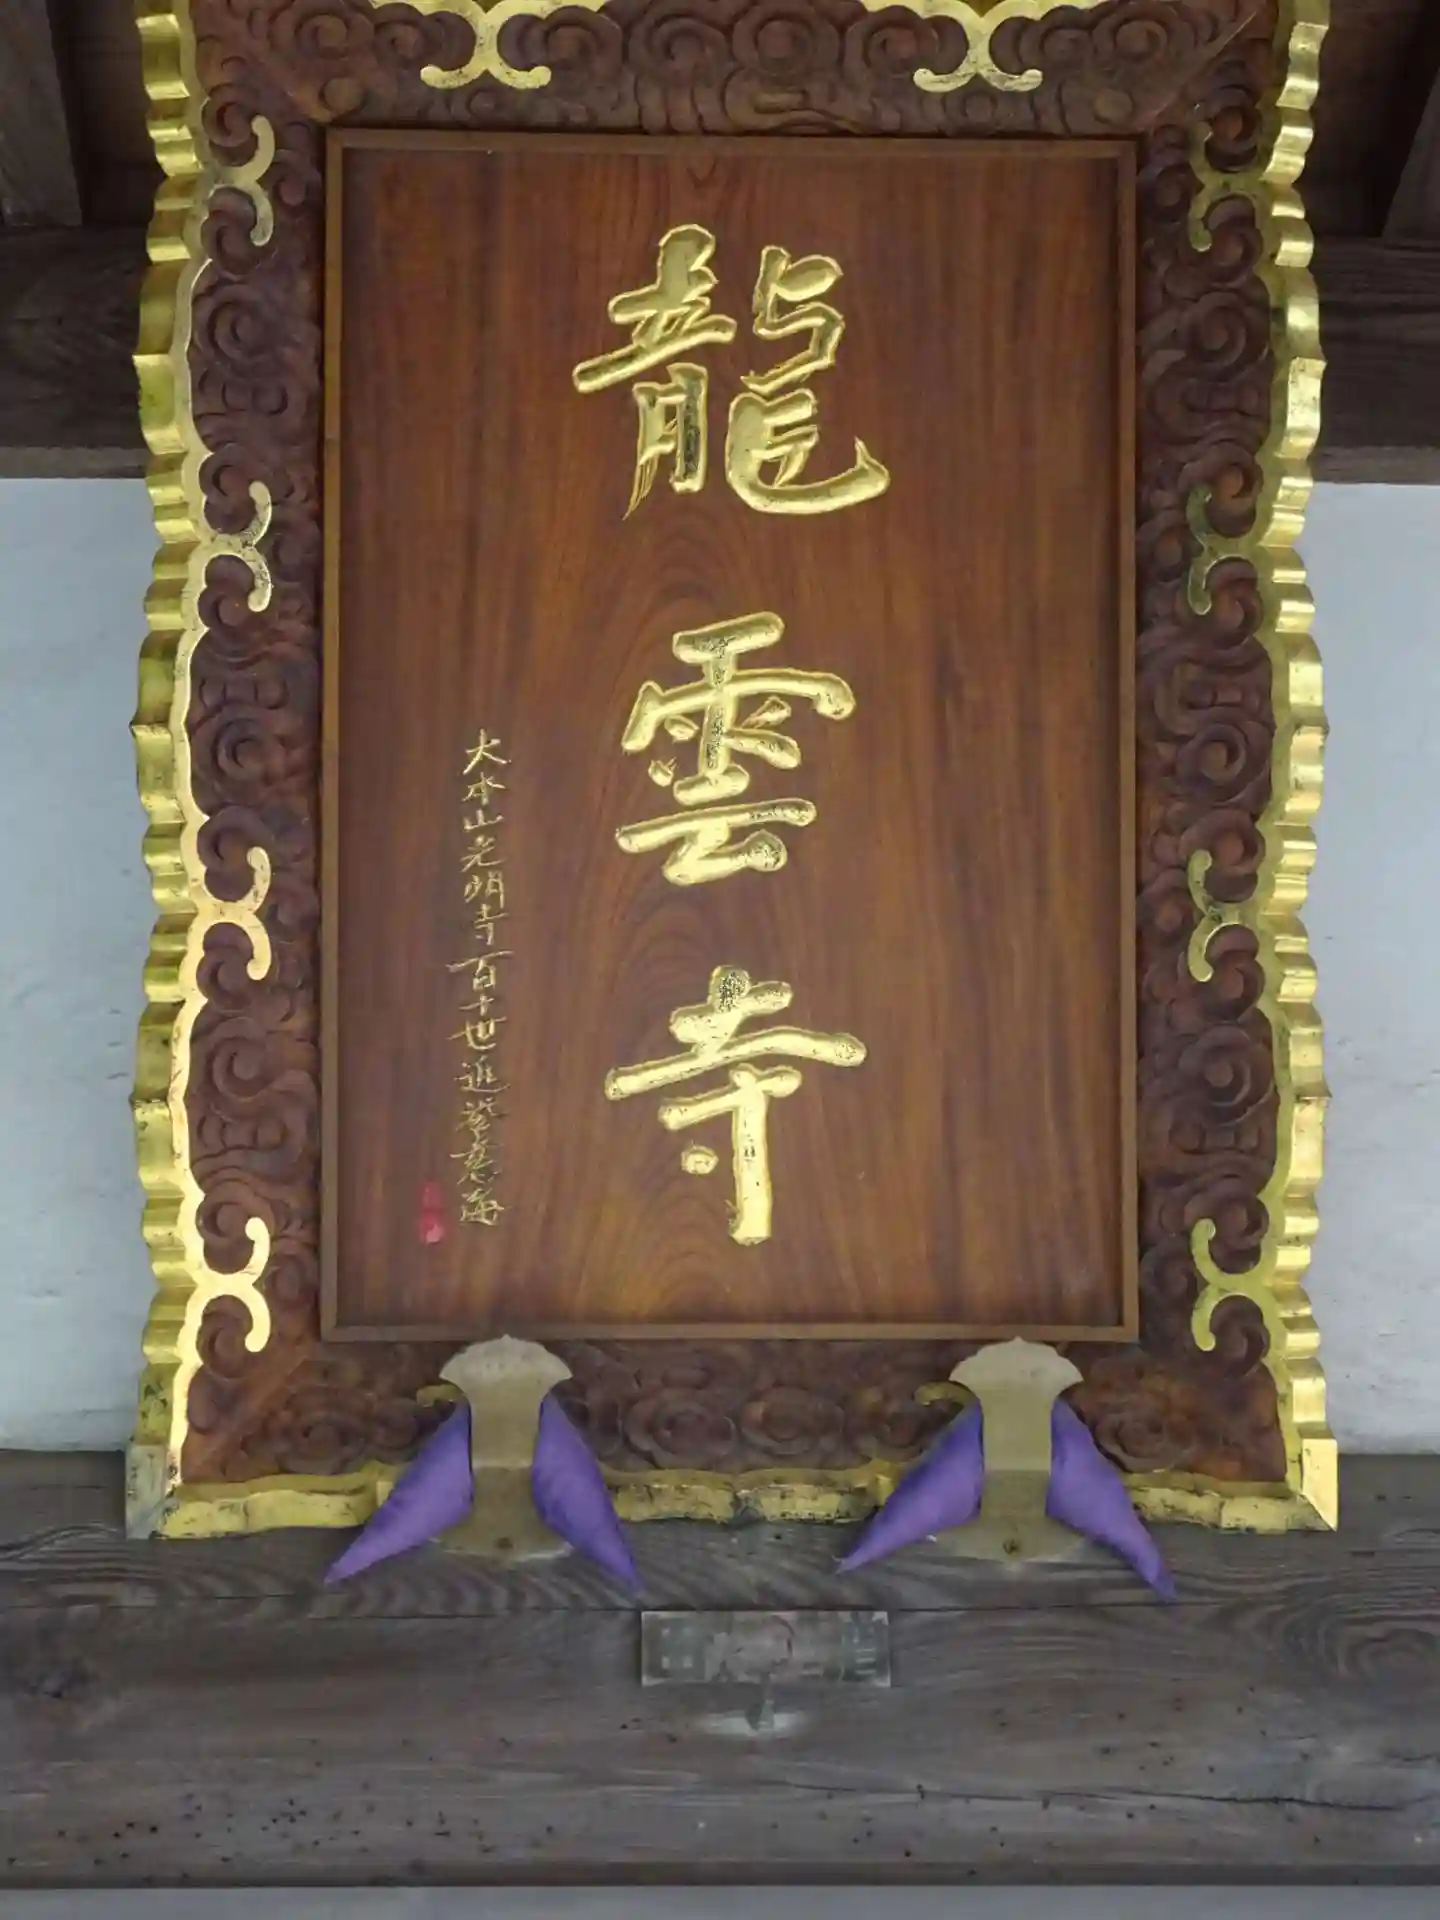 龍雲寺
大本山光明寺百十世進譽意海